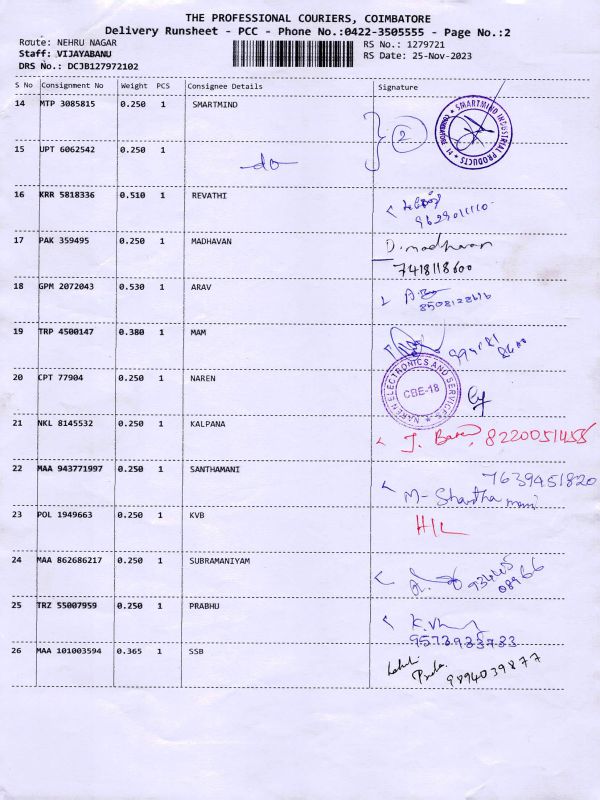 THE PROFESSIONAL COURIERS, COIMBATORE
Delivery Runsheet - PCC - Phone No.:0422-3505555 - Page No.:2
Route: NEHRU NAGAR RS No.: 1279721
Staff: VIJAYABANU RS Date: 25-Nov-2023
DRS No.: DCJB127972102
S No Consignment No Weight PCS Consignee Details Signature
14 MTP 3085815 0.250 1 SMARTMIND
2
SMARTMIND INDUSTRIAL PRODUCTS
15 UPT 6062542 0.250 1
do
16 KRR 5818336 0.510 1 REVATHI
9629011110
17 PAK 359495 0.250 1 MADHAVAN D. madhavan
7418118600
18 GPM 2072043 0.530 1 ARAV
19 TRP 4500147 0.380 1 MAM
20 CPT 77904 0.250 1 NAREN
NAREN ELECTRONICS AND SERVICES
CBE-18
21 NKL 8145532 0.250 1 KALPANA
8220051455
22 MAA 943771997 0.250 1 SANTHAMANI 7639451820
M- Shantha mani
23 POL 1949663 0.250 1 KVB H/L
24 MAA 862686217 0.250 1 SUBRAMANIYAM
25 TRZ 55007959 0.250 1 PRABHU
26 MAA 101003594 0.365 1 SSB
9894039877